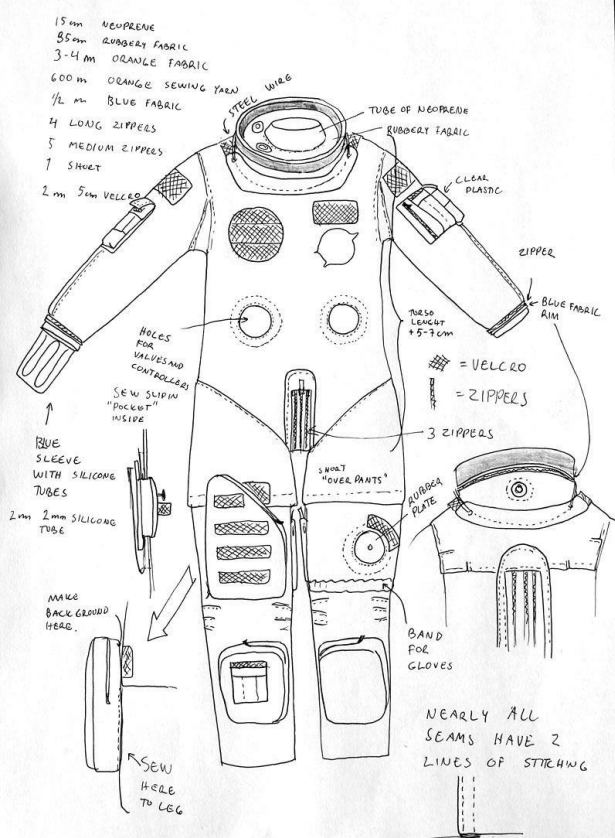 15cm NEOPRENE
35cm RUBBERY FABRIC
3-4 M ORANGE FABRIC
600 m ORANGE SEWING YARN
1/2 m BLUE FABRIC
4 LONG ZIPPERS
5 MEDIUM ZIPPERS
1 SHORT
2m 5cm VELCRO
STEEL WIRE
TUBE OF NEOPRENE
RUBBERY FABRIC
CLEAR
PLASTIC
ZIPPER
BLUE FABRIC
RIM
TORSO
LENGHT
+5-7cm
= VELCRO
= ZIPPERS
3 ZIPPERS
HOLES
FOR
VALVES AND
CONTROLLERS
SEW SLIP IN
"POCKET"
INSIDE
BLUE
SLEEVE
WITH SILICONE
TUBES
2m 2mm SILICONE
TUBE
SHORT
"OVER PANTS"
RUBBER
PLATE
MAKE
BACKGROUND
HERE.
BAND
FOR
GLOVES
SEW
HERE
TO LEG
NEARLY ALL
SEAMS HAVE 2
LINES OF STITCHING